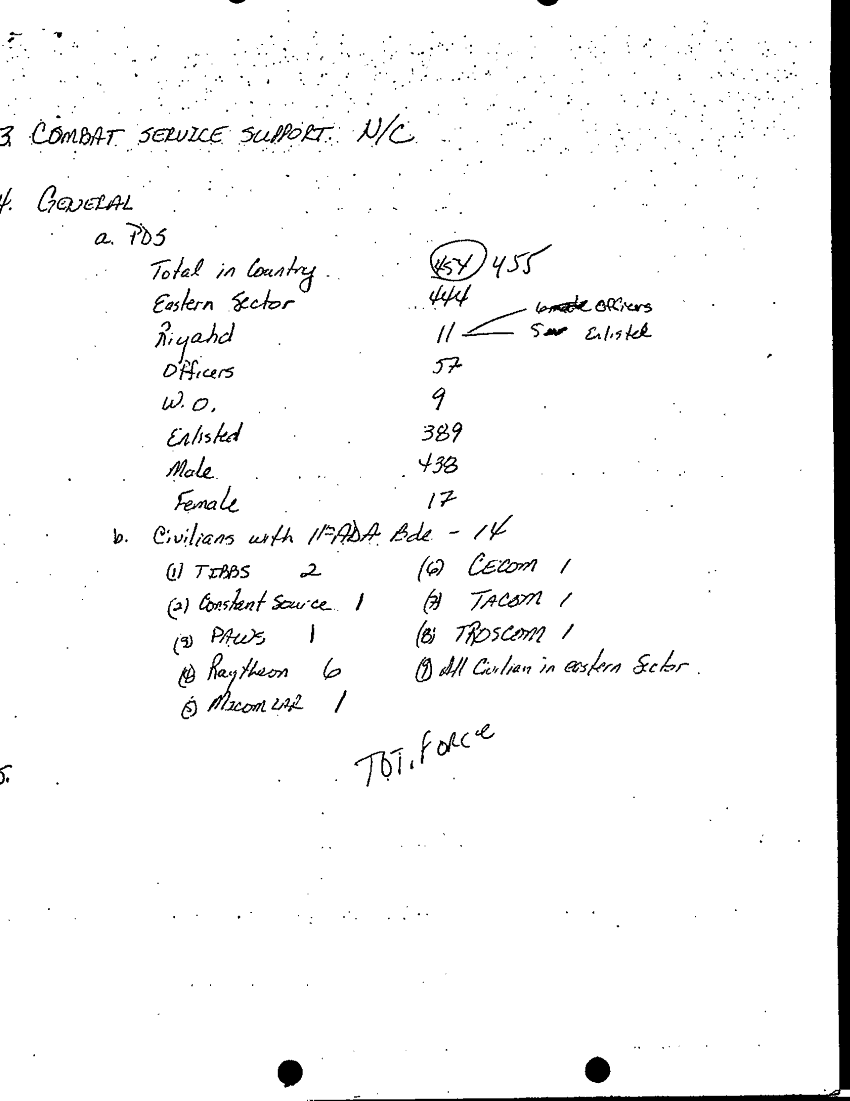 3. COMBAT SERVICE SUPPORT. N/C
4. GENERAL
a. PDS
Total in Country 454 455
Eastern Sector 444
Riyahd 11 6 Officers
5 Enlisted
Officers 57
W.O. 9
Enlisted 389
Male 438
Female 17
b. Civilians with 11th ADA Bde - 14
(1) TIBBS 2 (6) CECOM 1
(2) Constant Source 1 (7) TACOM 1
(3) PAWS 1 (8) TROSCOM 1
(4) Raytheon 6 (9) All Civilian in eastern Sector.
(5) MICOM LAR 1
TOT. FORCE
5.